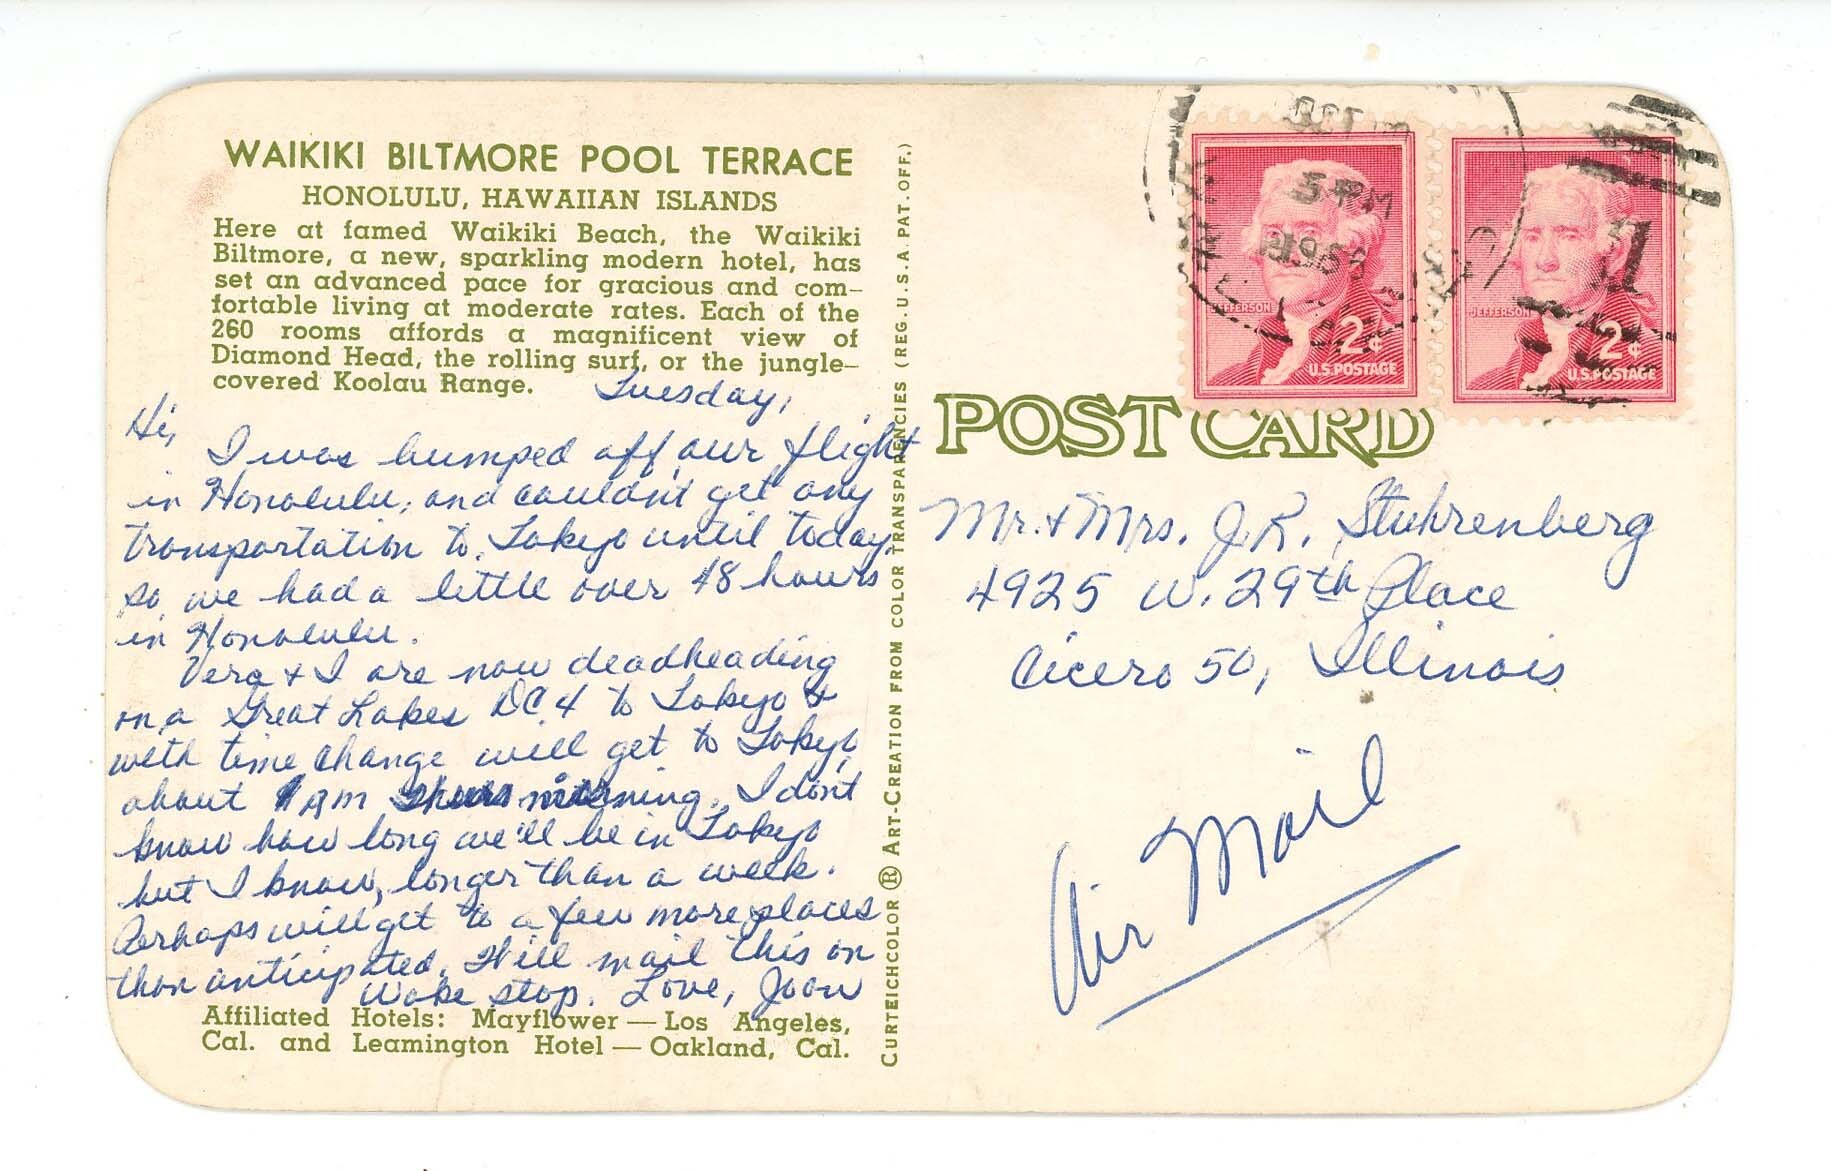 WAIKIKI BILTMORE POOL TERRACE
HONOLULU, HAWAIIAN ISLANDS
Here at famed Waikiki Beach, the Waikiki
Biltmore, a new, sparkling modern hotel, has
set an advanced pace for gracious and com-
fortable living at moderate rates. Each of the
260 rooms affords a magnificent view of
Diamond Head, the rolling surf, or the jungle-
covered Koolau Range.
Tuesday,
Hi,
I was bumped off our flight
in Honolulu, and couldn't get any
transportation to Tokyo until today
so we had a little over 48 hours
in Honolulu.
Vera & I are now deadheading
on a Great Lakes DC 4 to Tokyo &
with time change will get to Tokyo,
about pm
know how long we'll be in Tokyo
but I know, longer than a week.
Perhaps will get to a few more places
than anticipated. Will mail this on
Wake stop. Love, Joan
Affiliated Hotels: Mayflower — Los Angeles,
Cal. and Leamington Hotel — Oakland, Cal.
CURTEICHCOLOR ® ART-CREATION FROM COLOR TRANSPARENCIES (REG. U.S.A. PAT. OFF.)
OCT
5 PM
JEFFERSON
2¢
U.S. POSTAGE
JEFFERSON
2¢
U.S. POSTAGE
POST CARD
Mr. & Mrs. J.R. Stuhrenberg
4925 W. 29th Place
Cicero 50, Illinois
Air Mail